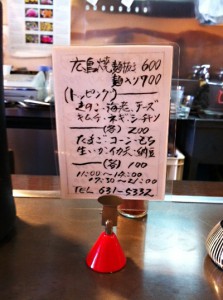 広島焼 麺抜き 600
麺入り 700
(トッピング)
きのこ・海老・チーズ
キムチ・ネギ・シーチキン
(各) 200
たまご・コーン・もち
生いか・イカ天・納豆
(各) 100
11:00〜14:00
17:30〜21:00
TEL 631-5332